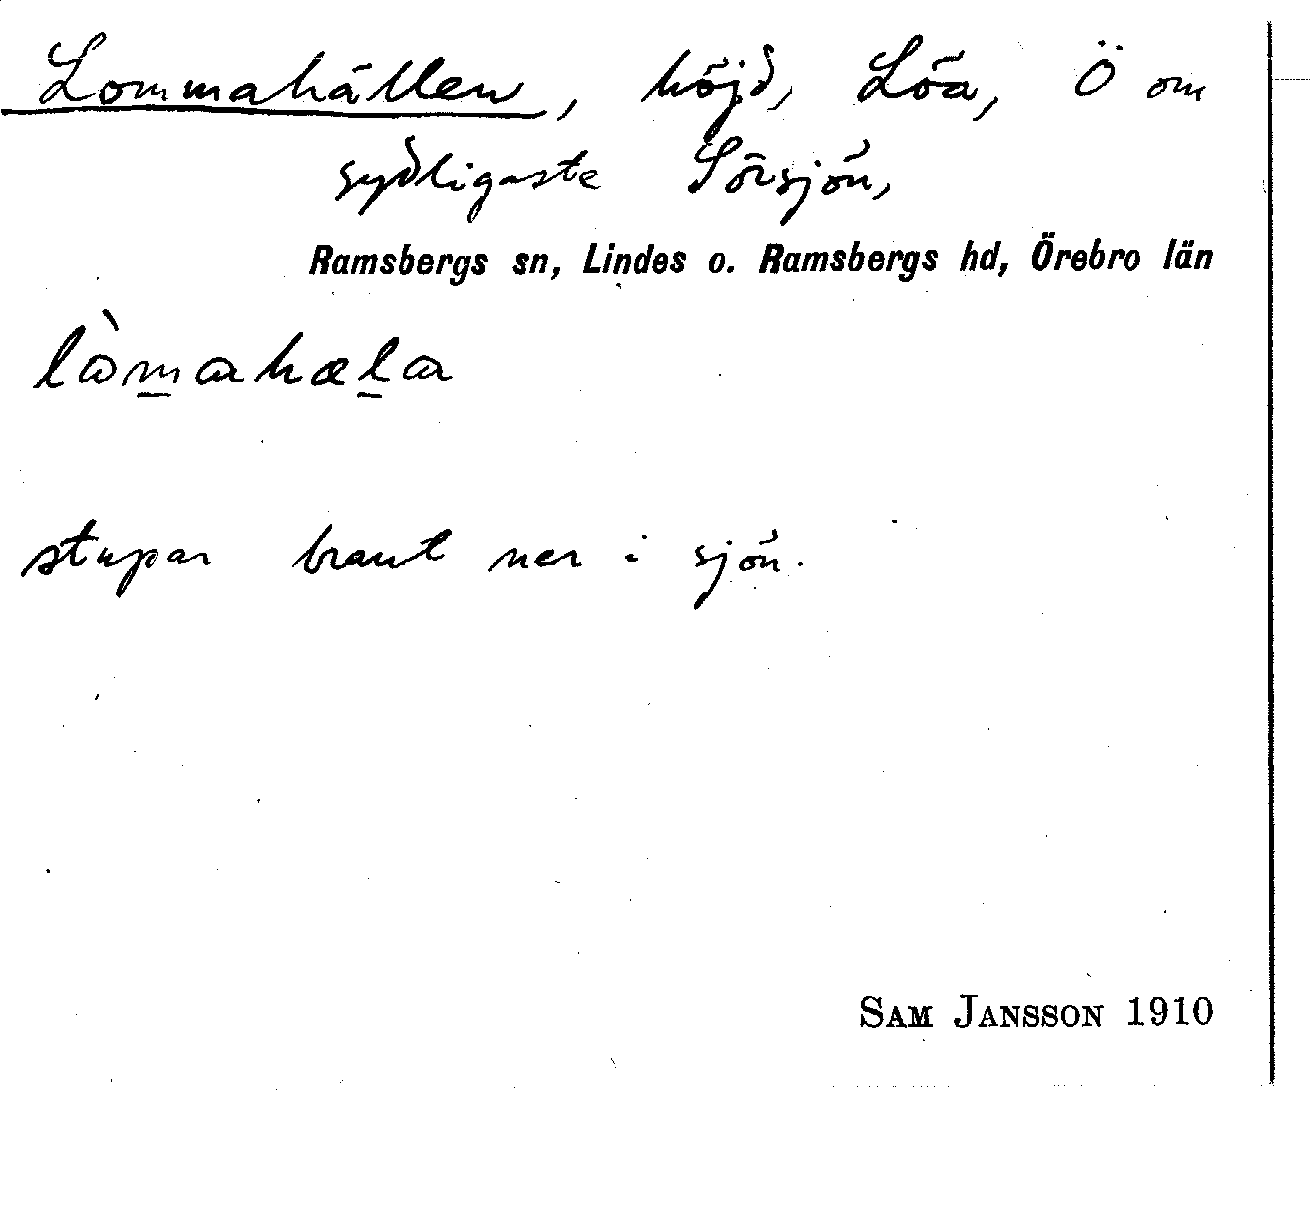 Lommahällen, höjd, Löa, Ö om
sydligaste Sörsjön,
Ramsbergs sn, Lindes o. Ramsbergs hd, Örebro län
lòmahæla
stupar brant ner i sjön.
SAM JANSSON 1910